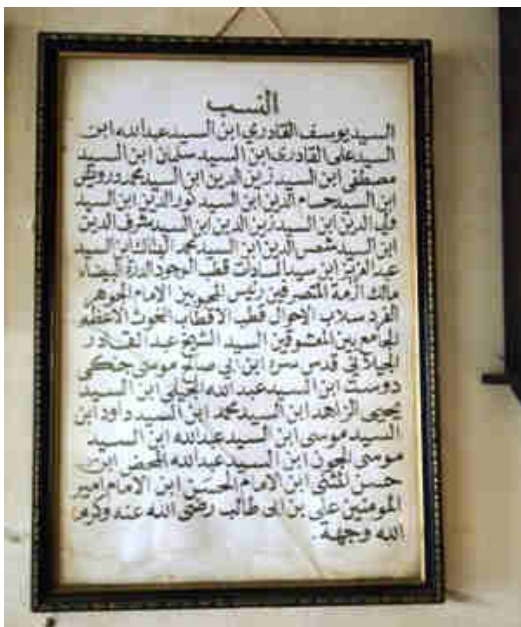 النسب
السيد يوسف القادري ابن السيد عبدالله ابن
السيد علي القادري ابن السيد سلمان ابن السيد
مصطفى ابن السيد زين الدين ابن السيد محمد درويش
ابن السيد حسام الدين ابن السيد نور الدين ابن السيد
ولي الدين ابن السيد زين الدين ابن السيد شرف الدين
ابن السيد شمس الدين ابن السيد محمد الهتاك ابن السيد
عبد العزيز ابن سيد السادات قطب الوجود الدرة البيضاء
مالك ازمة المتصرفين رئيس المحبوبين الامام الجوهر
الفرد سلاب الاحوال قطب الاقطاب الغوث الاعظم
الجامع بين المعشوقين السيد الشيخ عبد القادر
الجيلاني قدس سره ابن ابي صالح موسى جنكي
دوست ابن السيد عبد الله الجيلي ابن السيد
يحيى الزاهد ابن السيد محمد ابن السيد داود ابن
السيد موسى ابن السيد عبدالله ابن السيد
موسى الجون ابن السيد عبدالله المحض ابن
حسن المثنى ابن الامام الحسن ابن الامام امير
المومنين علي بن ابي طالب رضي الله عنه وكرم
الله وجهة.